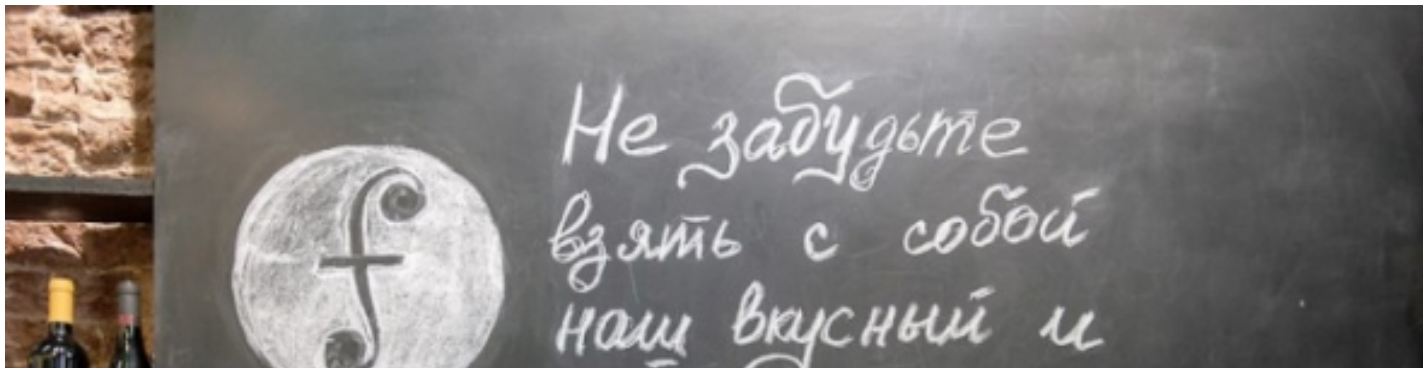 Не забудьте
взять с собой
наш вкусный и
f